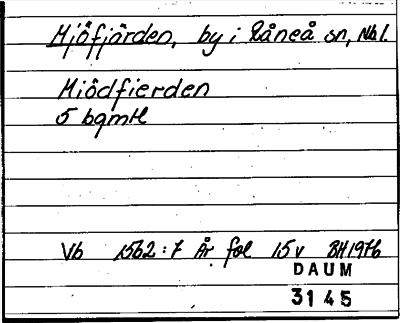 Mjöfjärden, by i Råneå sn, Nbl.
Miödfierden
5 bgmtl
Vb 1562:7 År fol 15v BH1976
DAUM
3145